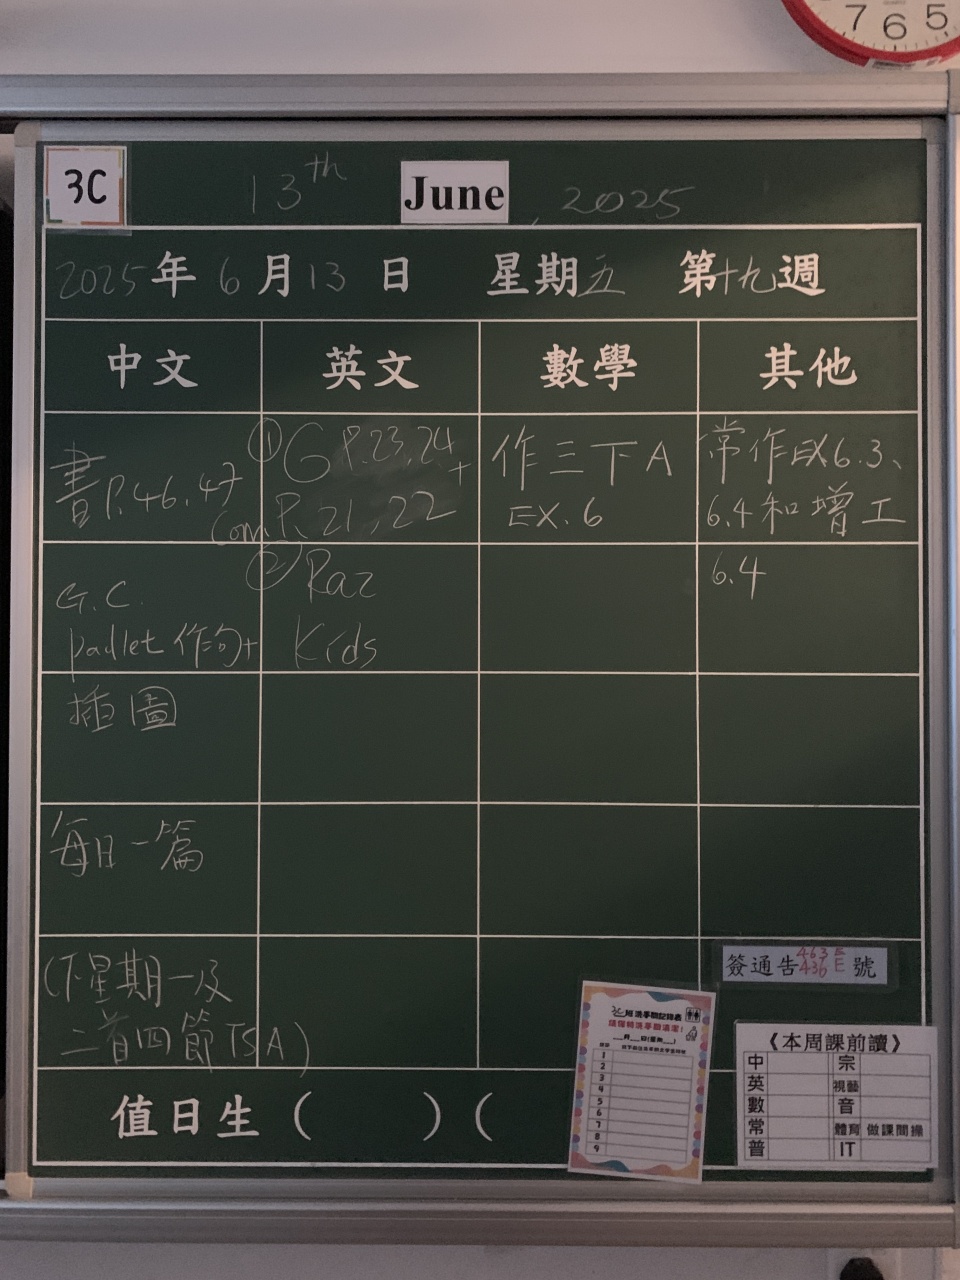 7 6 5
3C
13th June, 2025
2025年6月13日 星期五 第十九週
中文 英文 數學 其他
書P.46,47
G.C.
padlet作句+
插圖
每日一篇
(下星期一及
二首四節TSA)
① G P.23,24
+
Com P.21,22
② Raz
Kids
作三下A
EX.6
常作EX6.3、
6.4和增工
6.4
簽通告463E 436E號
3C班洗手間記錄表
1
2
3
4
5
6
7
8
9
《本周課前讀》
中 宗
英 視藝
數 音
常 體育 做課間操
普 IT
值日生( )(